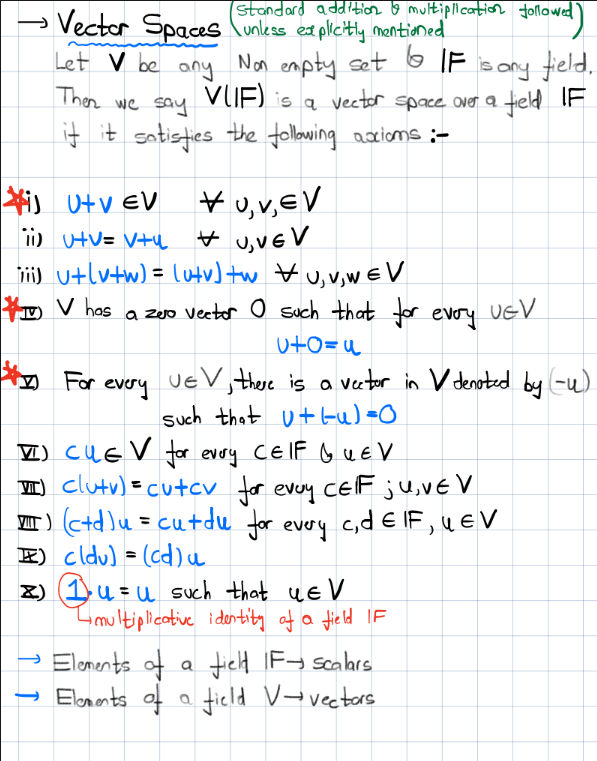 → Vector Spaces (standard addition & multiplication followed)
(unless explicitly mentioned
Let V be any Non empty set & IF is any field.
Then we say V(IF) is a vector space over a field IF
if it satisfies the following axioms :-
i) u+v ∈V ∀ u,v,∈V
ii) u+v= v+u ∀ u,v∈V
iii) u+(v+w) = (u+v)+w ∀ u,v,w ∈V
IV) V has a zero vector 0 such that for every u∈V
u+0=u
V) For every u∈V, there is a vector in V denoted by (-u)
such that u+(-u)=0
VI) cu∈ V for every c∈IF & u∈V
VII) c(u+v) = cu+cv for every c∈IF ; u,v∈V
VIII) (c+d)u = cu+du for every c,d∈IF, u∈V
IX) c(du) = (cd)u
X) 1.u=u such that u∈V
multiplicative identity of a field IF
→ Elements of a field IF→ scalars
→ Elements of a field V→vectors